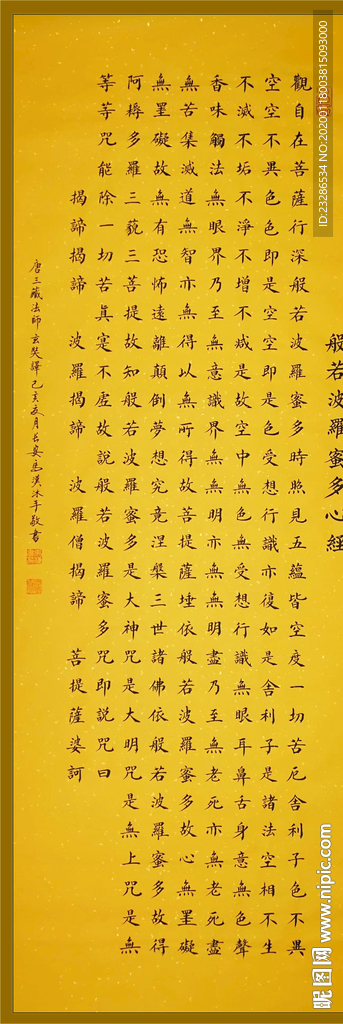 般若波羅蜜多心經
觀自在菩薩行深般若波羅蜜多時照見五蘊皆空度一切苦厄舍利子色不異
空空不異色色即是空空即是色受想行識亦復如是舍利子是諸法空相不生
不滅不垢不淨不增不減是故空中無色無受想行識無眼耳鼻舌身意無色聲
香味觸法無眼界乃至無意識界無無明亦無無明盡乃至無老死亦無老死盡
無苦集滅道無智亦無得以無所得故菩提薩埵依般若波羅蜜多故心無罣礙
無罣礙故無有恐怖遠離顛倒夢想究竟涅槃三世諸佛依般若波羅蜜多故得
阿耨多羅三藐三菩提故知般若波羅蜜多是大神咒是大明咒是無上咒是無
等等咒能除一切苦真寔不虛故說般若波羅蜜多咒即說咒曰
揭諦揭諦 波羅揭諦 波羅僧揭諦 菩提薩婆訶
唐三藏法師玄奘譯己亥 月 沐手敬書
ID:23286534 NO:20200118003815093000
昵图网 www.nipic.com